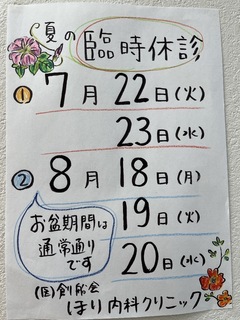 夏の臨時休診
① 7月22日(火)
23日(水)
② 8月18日(月)
19日(火)
20日(水)
お盆期間は
通常通り
です
(医)創船会
ほり内科クリニック